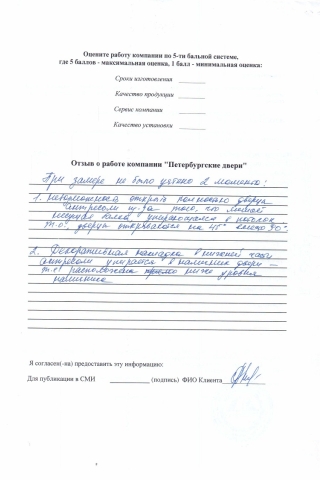 Оцените работу компании по 5-ти бальной системе,
где 5 баллов - максимальная оценка, 1 балл - минимальная оценка:
Сроки изготовления
Качество продукции
Сервис компании
Качество установки
Отзыв о работе компании "Петербургские двери"
При замере не было учтено 2 момента:
1. Невозможность открыть полностью дверцы
антресоли из-за того, что мешает
несущая балка, упирающаяся в потолок
т.о. дверца открывается на 45° вместо 90°.
2. Декоративная накладка в нижней части
антресоли упирается в наличник двери —
т.е. расположена прямо ниже уровня
наличника
Я согласен(-на) предоставить эту информацию:
Для публикации в СМИ (подпись) ФИО Клиента